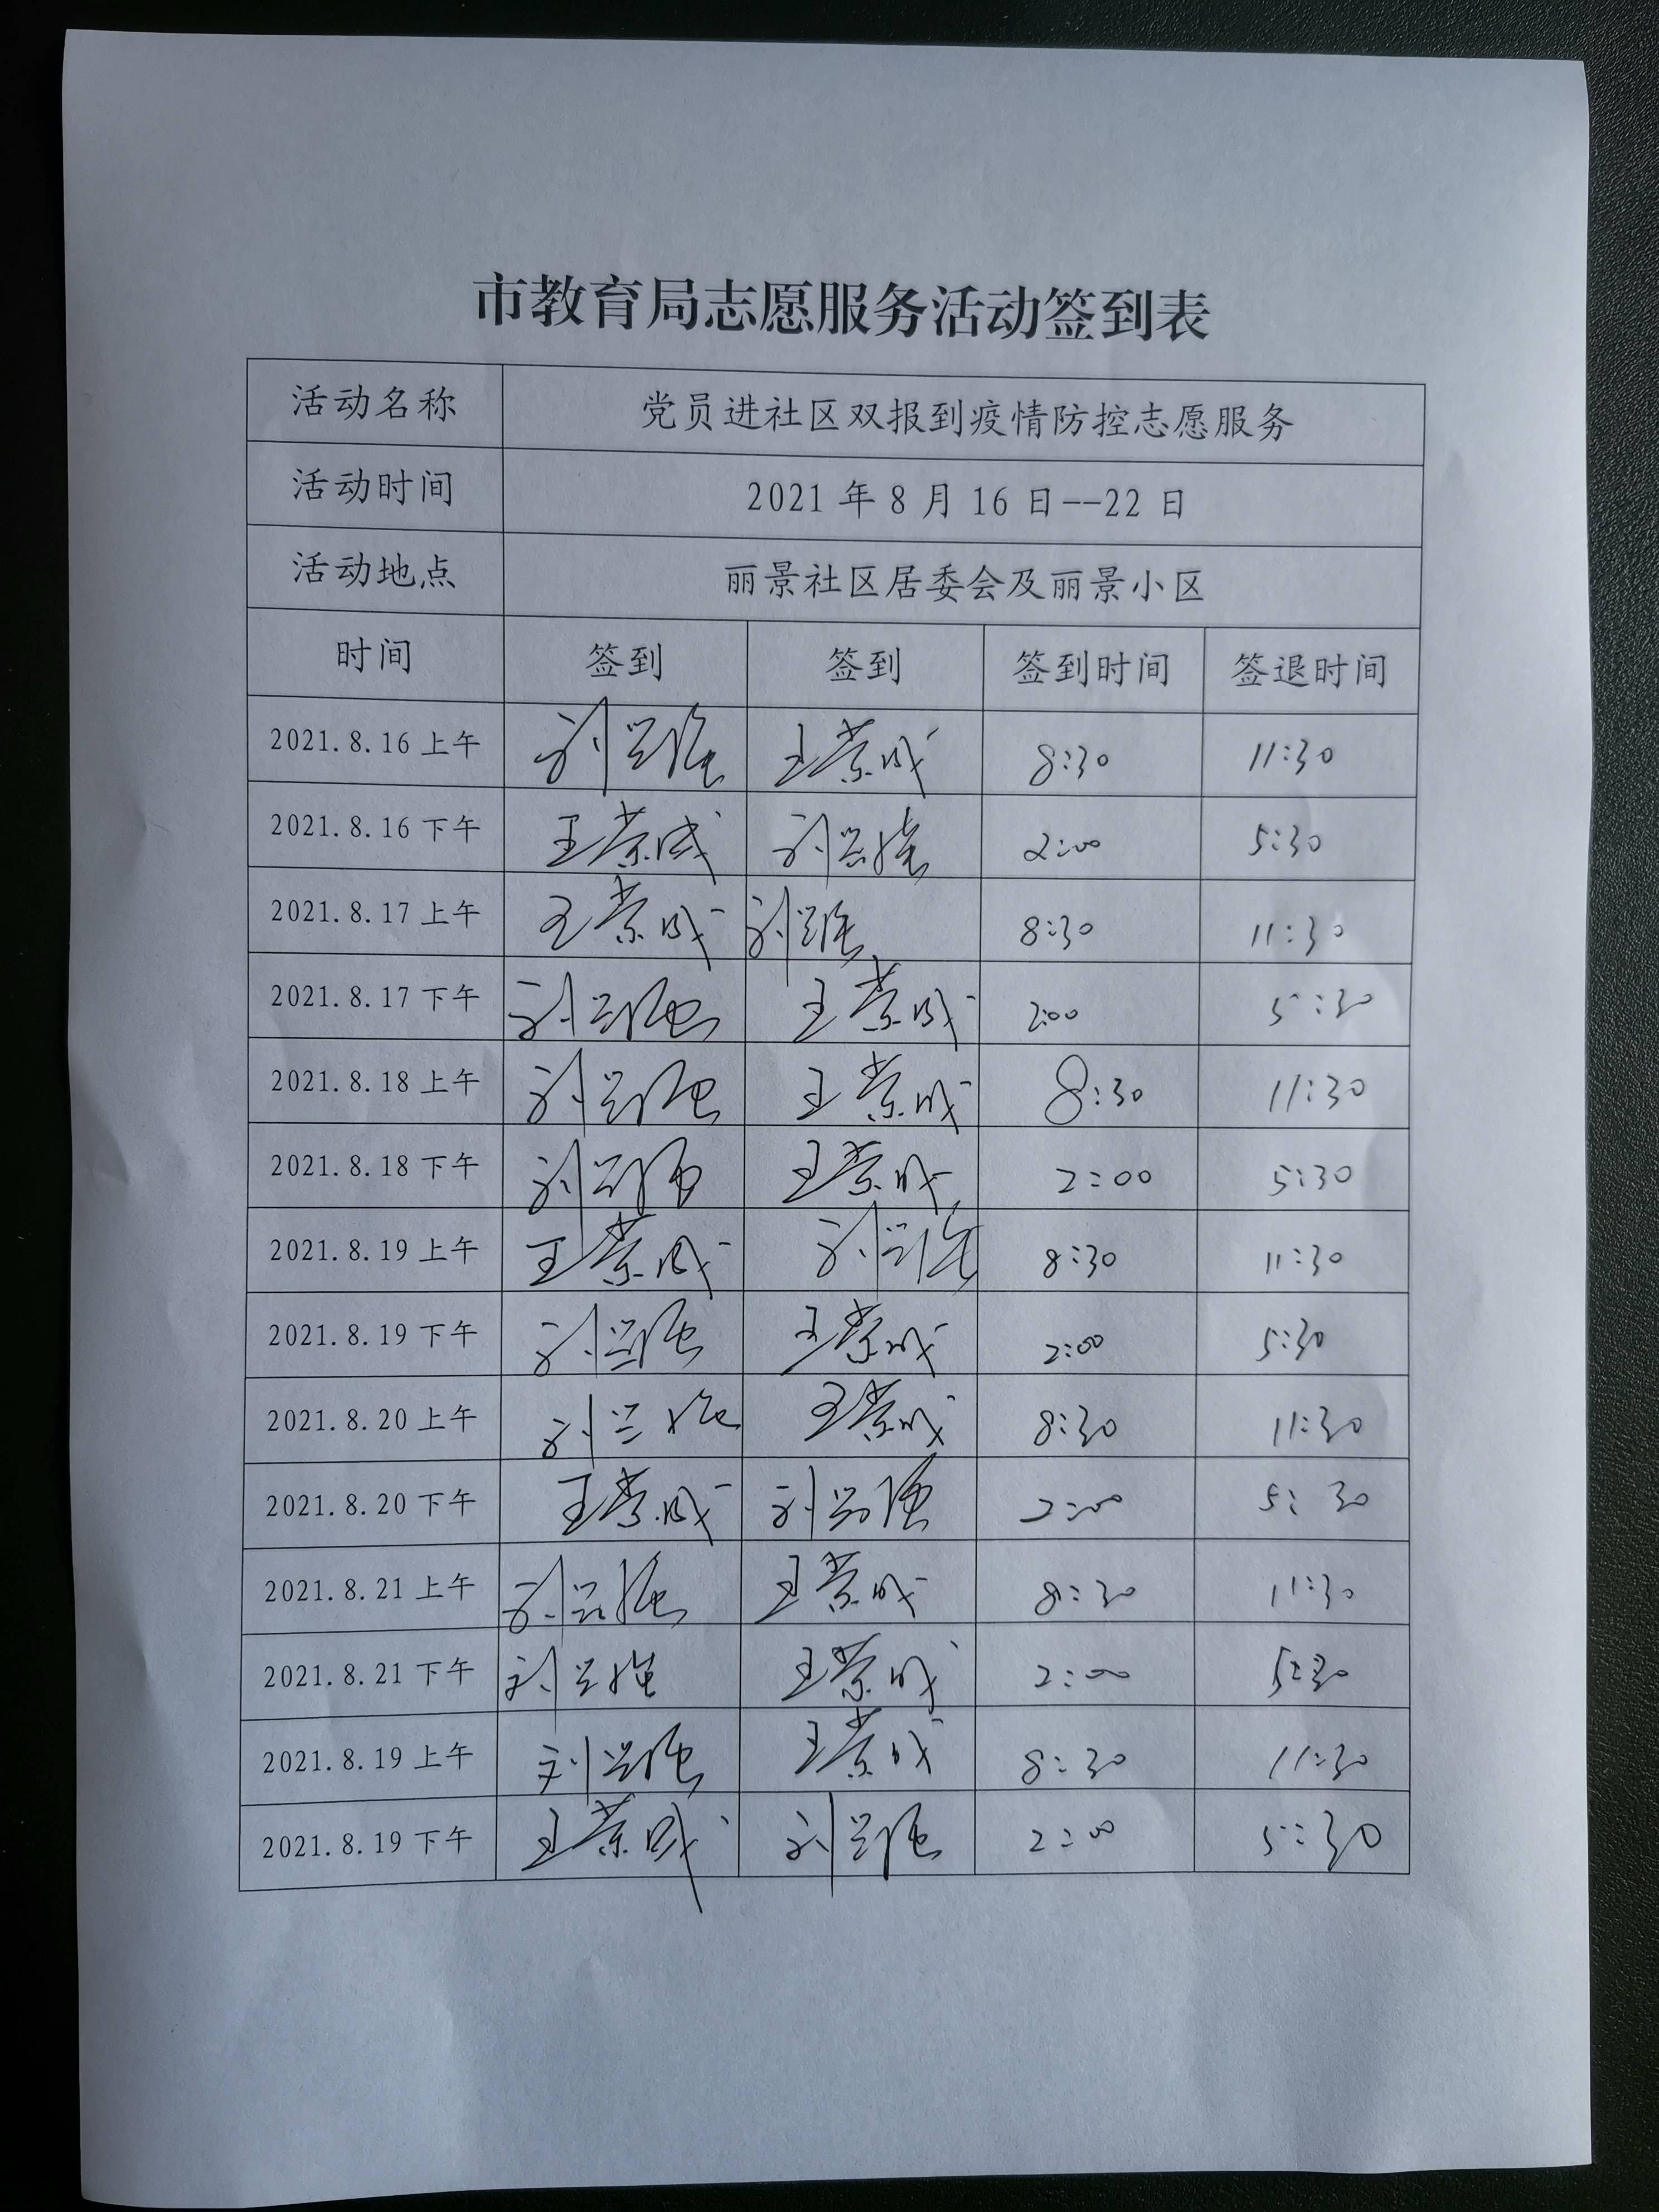 市教育局志愿服务活动签到表
活动名称 党员进社区双报到疫情防控志愿服务
活动时间 2021年8月16日--22日
活动地点 丽景社区居委会及丽景小区
时间 签到 签到 签到时间 签退时间
2021.8.16上午 刘兴强 王崇成 8:30 11:30
2021.8.16下午 王崇成 刘兴强 2:00 5:30
2021.8.17上午 王崇成 刘兴强 8:30 11:30
2021.8.17下午 刘兴强 王崇成 2:00 5:30
2021.8.18上午 刘兴强 王崇成 8:30 11:30
2021.8.18下午 刘兴强 王崇成 2:00 5:30
2021.8.19上午 王崇成 刘兴强 8:30 11:30
2021.8.19下午 刘兴强 王崇成 2:00 5:30
2021.8.20上午 刘兴强 王崇成 8:30 11:30
2021.8.20下午 王崇成 刘兴强 2:00 5:30
2021.8.21上午 刘兴强 王崇成 8:30 11:30
2021.8.21下午 刘兴强 王崇成 2:00 5:30
2021.8.19上午 刘兴强 王崇成 8:30 11:30
2021.8.19下午 王崇成 刘兴强 2:00 5:30